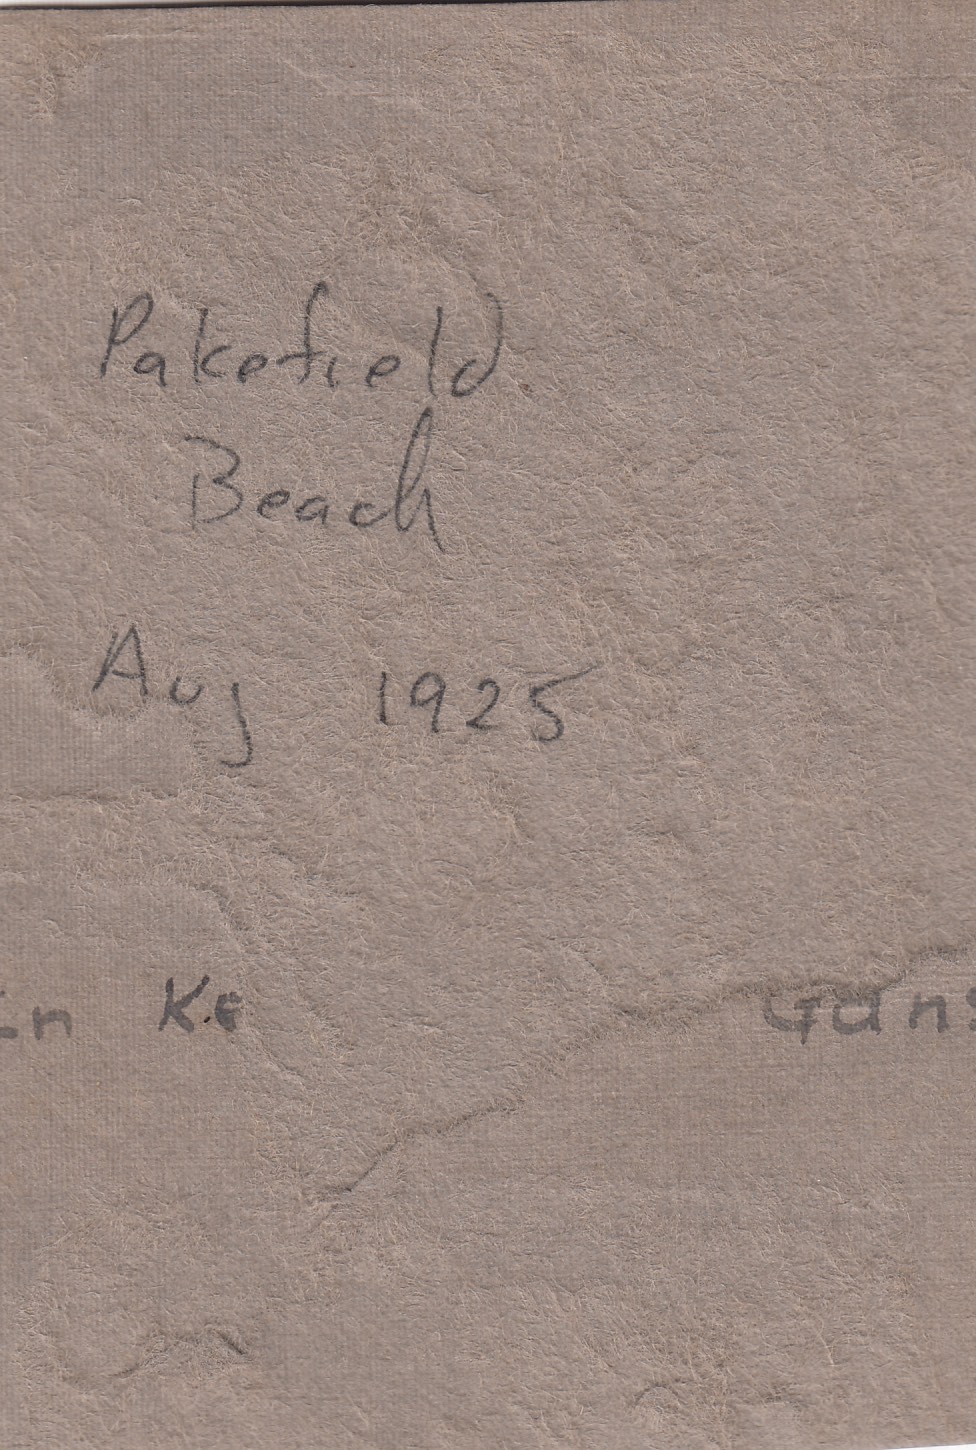 Pakefield
Beach
Aug 1925
in Ke Gans